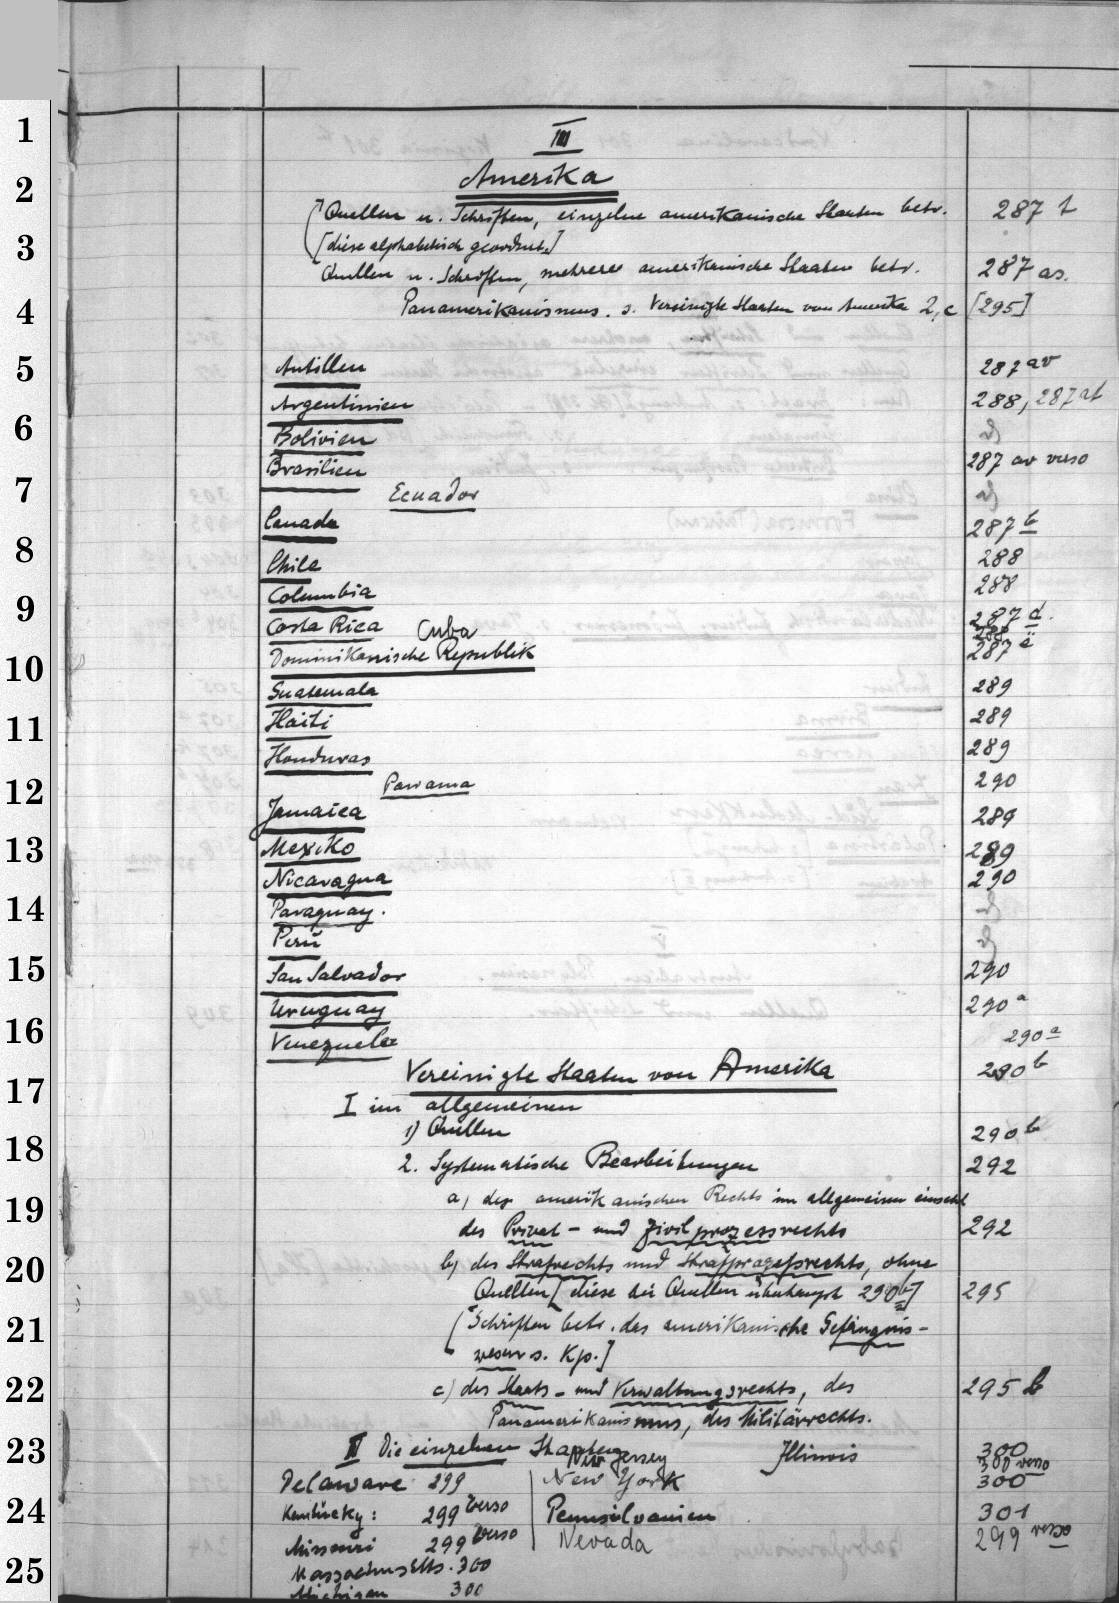 III
Amerika
[Quellen u. Schriften, einzelne amerikanische Staaten betr. 287 t
[diese alphabetisch geordnet.]
Quellen u. Schriften, mehrere amerikanische Staaten betr. 287 as.
Panamerikanismus. s. Vereinigte Staaten von Amerika 2, c [295]
Antillen 287 av
Argentinien 288, 287 at
Bolivien
Brasilien 287 av verso
Ecuador
Canada 287 b
Chile 288
Columbia 288
Costa Rica 287 d.
Cuba 288
Dominikanische Republik 287 e
Guatemala 289
Haiti 289
Honduras 289
Panama 290
Jamaica 289
Mexiko 289
Nicaragua 290
Paraguay.
Peru
San Salvador 290
Uruguay 290 a
Venezuela 290 a
Vereinigte Staaten von Amerika 290 b
I im allgemeinen
1) Quellen 290 b
2. Systematische Bearbeitungen 292
a) des amerikanischen Rechts im allgemeinen einschl
des Privat- und Zivilprozessrechts 292
b) des Strafrechts und Strafprozessrechts, ohne
Quellen [diese bei Quellen überhaupt 290 b] 295
[Schriften betr. das amerikanische Gefängnis-
wesen s. Kp.]
c) des Staats- und Verwaltungsrechts, des 295 b
Panamerikanismus, des Militärrechts.
II Die einzelnen Staaten Illinois 300
New Jersey 300 verso
Delaware 299 New York 300
Kentucky: 299 verso Pennsilvanien 301
Missouri 299 verso Nevada 299 verso
Massachusetts. 300
Michigan 300
1
2
3
4
5
6
7
8
9
10
11
12
13
14
15
16
17
18
19
20
21
22
23
24
25